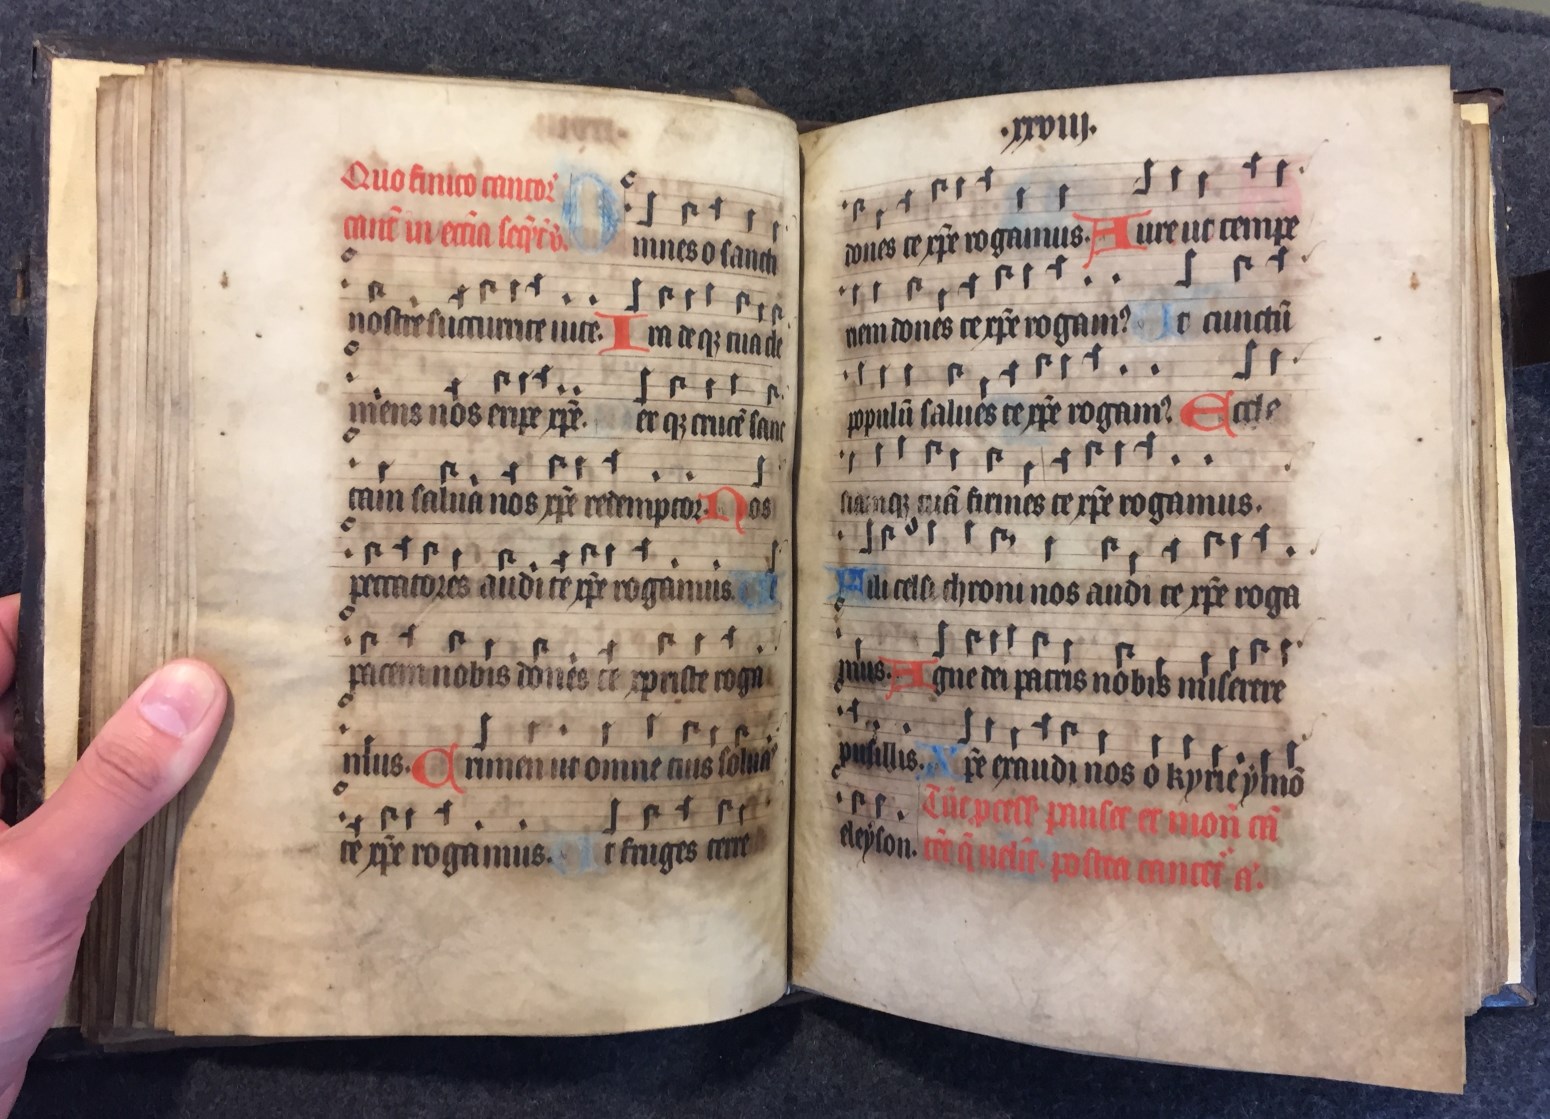 Quo finito cantor̃
canẽt in ecc̃ia seq̃
Omnes o sancti
nostre succurrite uite. I
mens nos eripe xp̃e. er qʒ crucẽ sanc
tam salua nos xp̃e redemptor. Nos
peccatores audi te xp̃e rogamus. Ut
pacem nobis dones te xpriste roga
mus. Crimen ut omne tuis soluas
te xp̃e rogamus. Ut fruges terre
.xxviij.
dones te xp̃e rogamus. Aure ut tempe
riem dones te xp̃e rogam? Ut cunctũ
populũ salues te xp̃e rogam? Eccle
siamqʒ tuã firmes te xp̃e rogamus.
Fili celsi throni nos audi te xp̃e roga
mus. Agne dei patris nobis miserere
pusillis. Xp̃e exaudi nos o kyrie ymõ
eleyson.